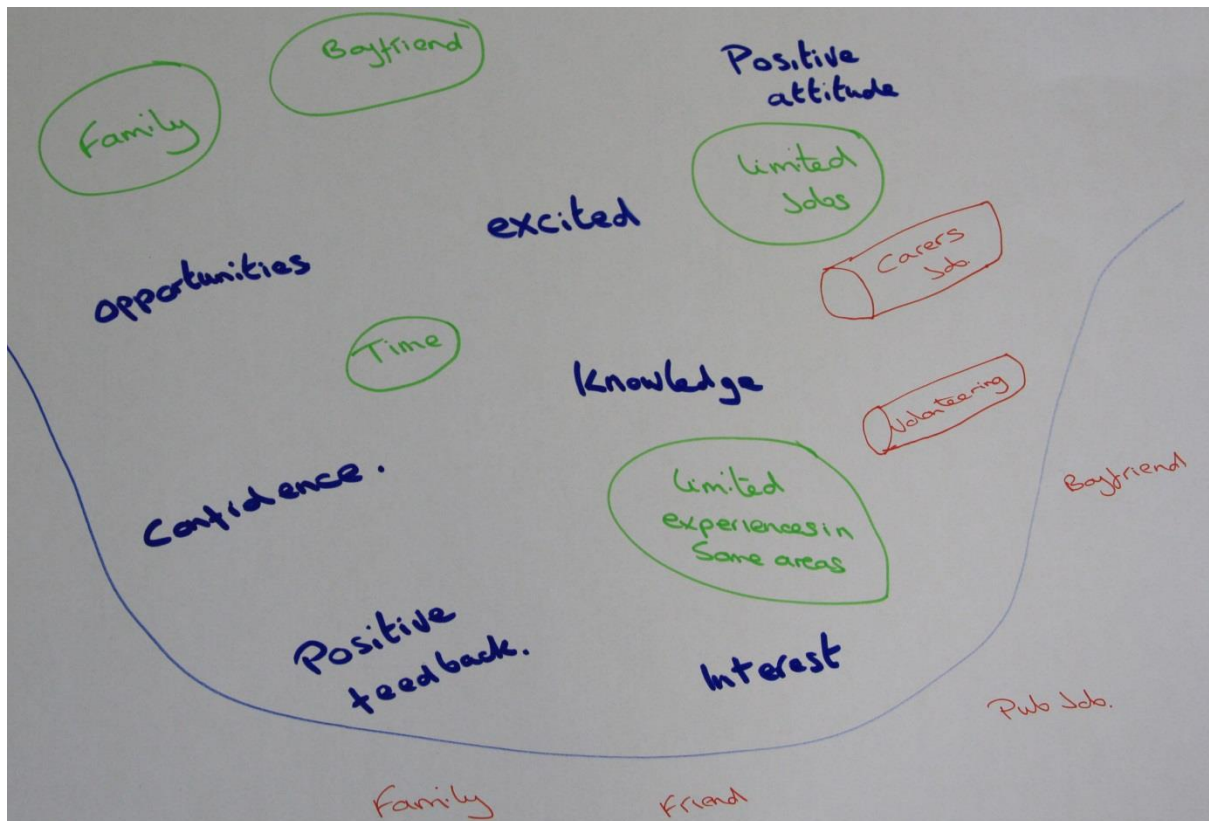 Boyfriend
Family
Positive
attitude
Limited
Jobs
excited
Carers
Job.
opportunities
Time
Knowledge
Volunteering
Confidence.
Limited
experiences in
Some areas
Boyfriend
Positive
feedback.
Interest
Pub Job.
Family
Friend